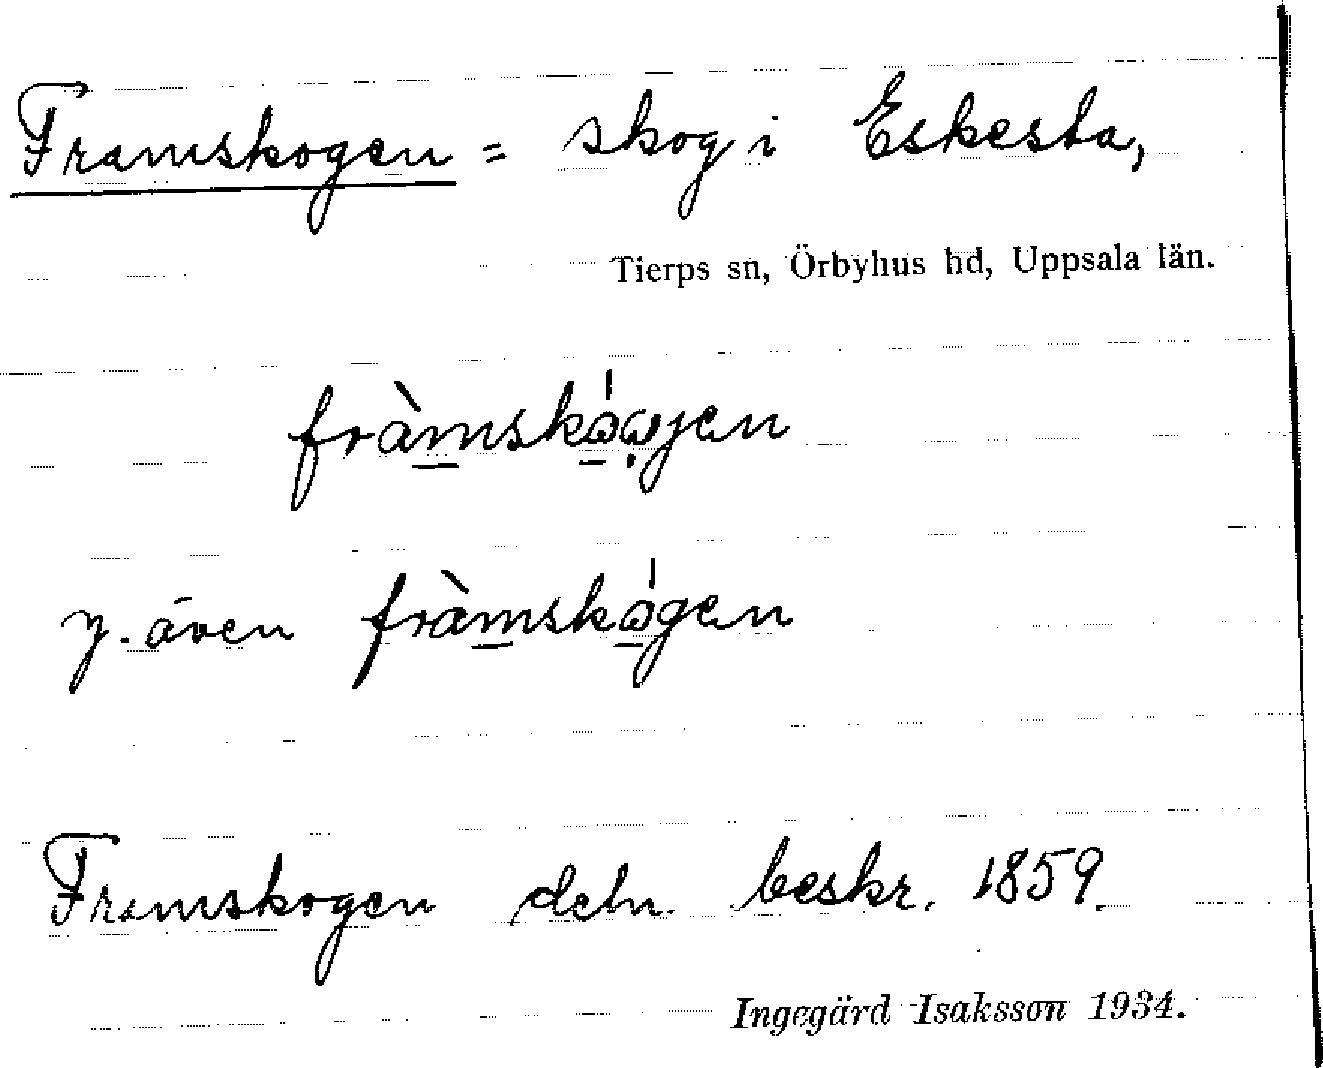 Framskogen = skog i Eskesta,
Tierps sn, Örbyhus hd, Uppsala län.
y. även
Framskogen deln. beskr. 1859.
Ingegärd Isaksson 1934.